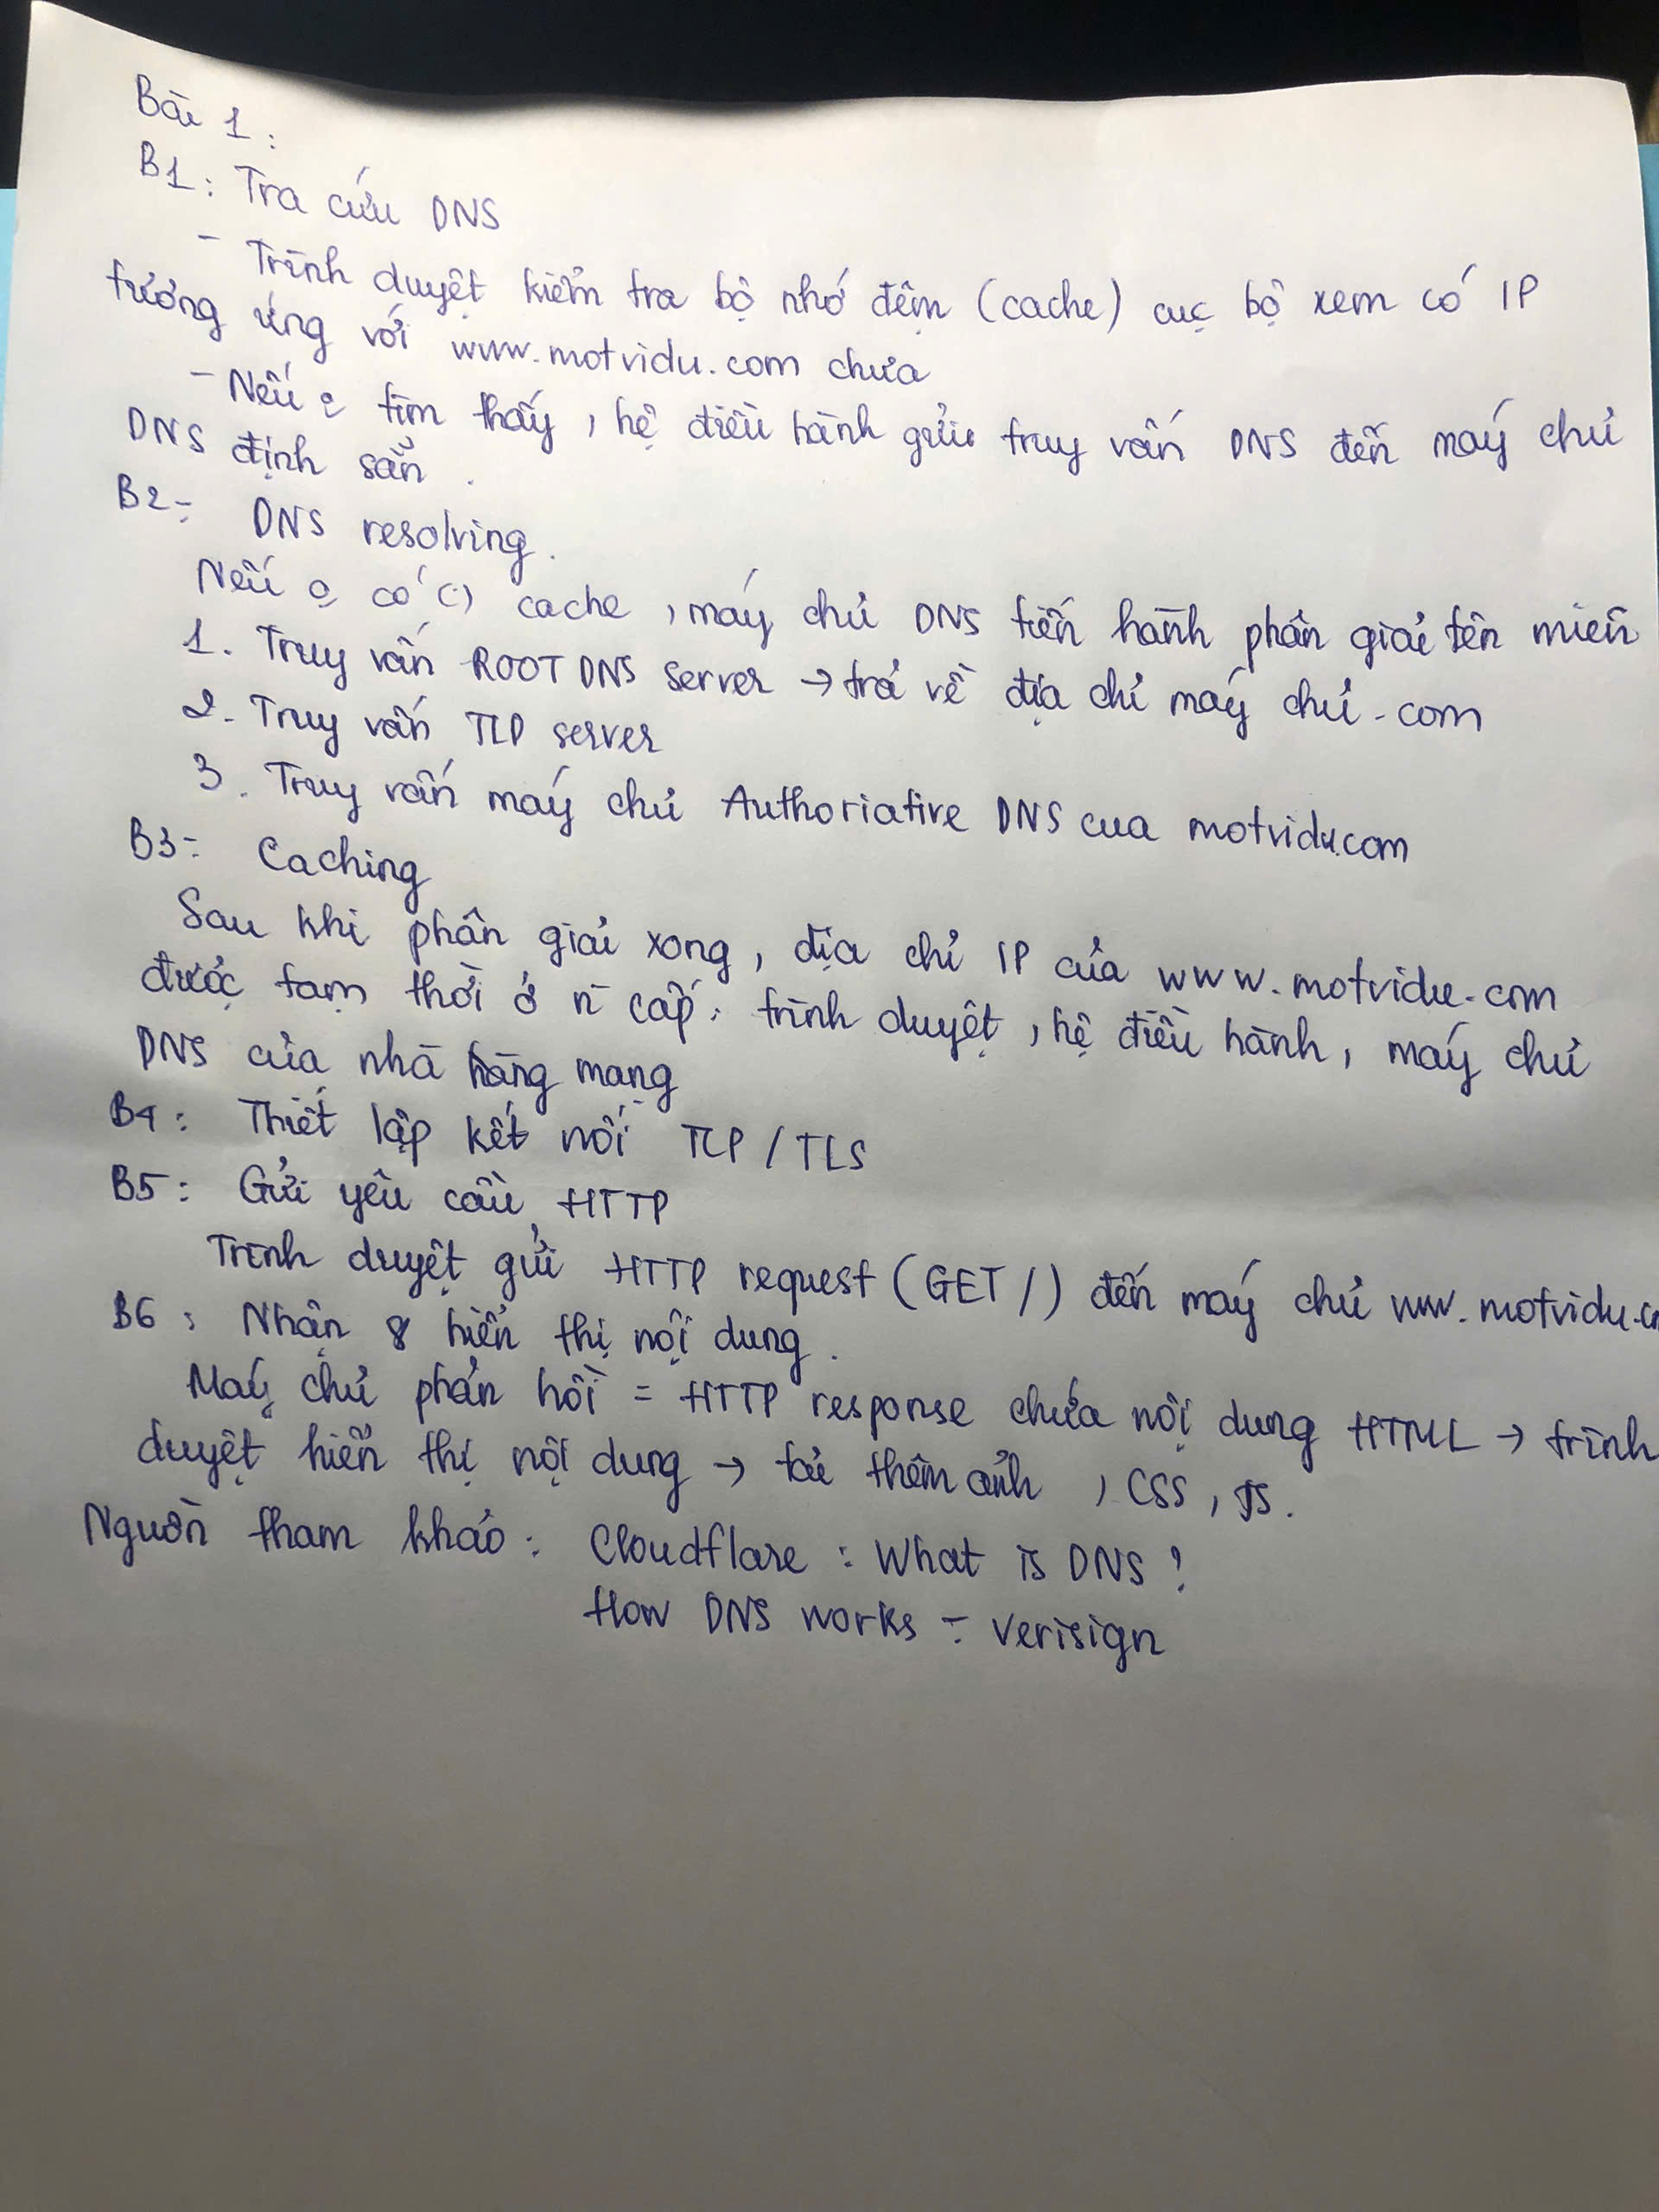 Bài 1:
B1: Tra cứu DNS
- Trình duyệt kiểm tra bộ nhớ đệm (cache) cục bộ xem có IP
tương ứng với www.motvidu.com chưa
- Nếu tìm thấy, hệ điều hành gửi truy vấn DNS đến máy chủ
DNS định sẵn.
B2: DNS resolving.
Nếu có cache, máy chủ DNS tiến hành phân giải tên miền
1. Truy vấn ROOT DNS server → trả về địa chỉ máy chủ .com
2. Truy vấn server
3. Truy vấn máy chủ Authoriative DNS cua motvidu.com
B3: Caching
Sau khi phân giải xong, địa chỉ IP của www.motvidu.com
được tạm thời ở cấp: trình duyệt, hệ điều hành, máy chủ
DNS của nhà mạng
B4: Thiết lập kết nối TCP/TLS
B5: Gửi yêu cầu HTTP
Trình duyệt gửi HTTP request (GET /) đến máy chủ www.motvidu.
B6: Nhận & hiển thị nội dung.
Máy chủ phản hồi = HTTP response chứa nội dung HTML → trình
duyệt hiển thị nội dung → tải thêm ảnh, CSS, JS.
Nguồn tham khảo: Cloudflare: What is DNS?
How DNS works - Verisign